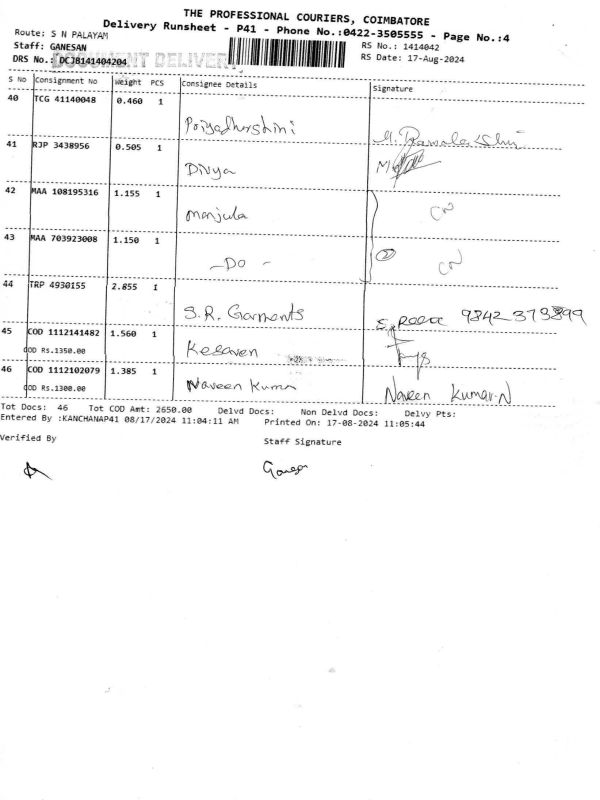 THE PROFESSIONAL COURIERS, COIMBATORE
Delivery Runsheet - P41 - Phone No.:0422-3505555 - Page No.:4
Route: S N PALAYAM
Staff: GANESAN RS No.: 1414042
DOCUMENT DELIVERY
DRS No.: DCJB141404204 RS Date: 17-Aug-2024
S No Consignment No Weight PCS Consignee Details Signature
40 TCG 41140048 0.460 1
Poiyadharshini
41 RJP 3438956 0.505 1
Divya
42 MAA 108195316 1.155 1
manjula
43 MAA 703923008 1.150 1
- DO -
44 TRP 4930155 2.855 1
S.R. Garments 9842 373899
45 COD 1112141482 1.560 1
COD Rs.1350.00 Kesaven
46 COD 1112102079 1.385 1
COD Rs.1300.00 Naveen Kumar Naveen Kumar.N
Tot Docs: 46 Tot COD Amt: 2650.00 Delvd Docs: Non Delvd Docs: Delvy Pts:
Entered By :KANCHANAP41 08/17/2024 11:04:11 AM Printed On: 17-08-2024 11:05:44
Verified By Staff Signature
Ganesan